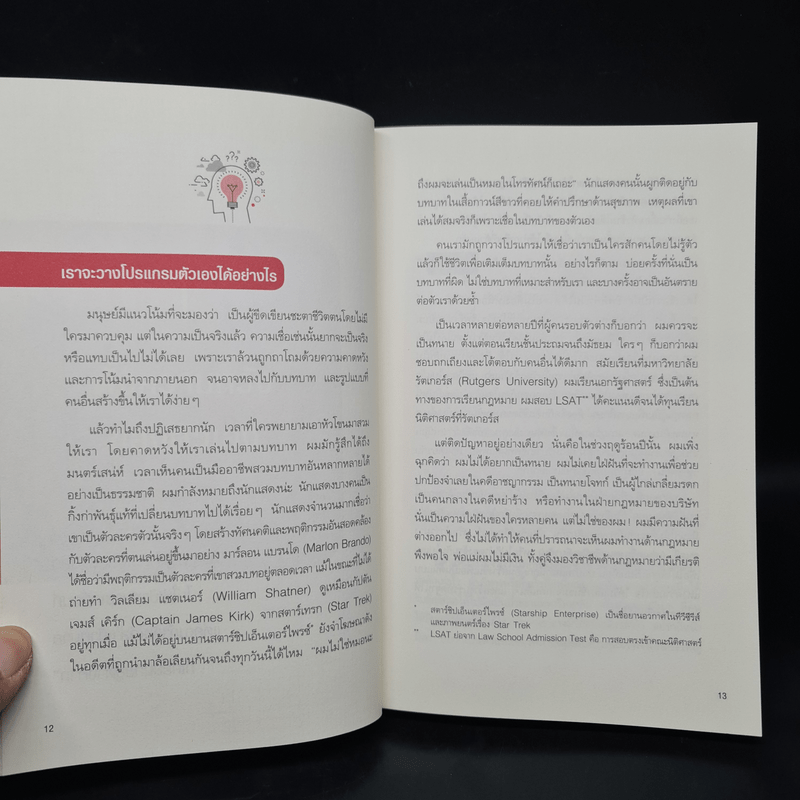 ???
เราจะวางโปรแกรมตัวเองได้อย่างไร
มนุษย์มีแนวโน้มที่จะมองว่า เป็นผู้ขีดเขียนชะตาชีวิตตนโดยไม่มี
ใครมาควบคุม แต่ในความเป็นจริงแล้ว ความเชื่อเช่นนั้นยากจะเป็นจริง
หรือแทบเป็นไปไม่ได้เลย เพราะเราล้วนถูกถาโถมด้วยความคาดหวัง
และการโน้มนำจากภายนอก จนอาจหลงไปกับบทบาท และรูปแบบที่
คนอื่นสร้างขึ้นให้เราได้ง่าย ๆ
แล้วทำไมถึงปฏิเสธยากนัก เวลาที่ใครพยายามเอาหัวโขนมาสวม
ให้เรา โดยคาดหวังให้เราเล่นไปตามบทบาท ผมมักรู้สึกได้ถึง
มนตร์เสน่ห์ เวลาเห็นคนเป็นมืออาชีพสวมบทบาทอันหลากหลายได้
อย่างเป็นธรรมชาติ ผมกำลังหมายถึงนักแสดงน่ะ นักแสดงบางคนเป็น
กิ้งก่าพันธุ์แท้ที่เปลี่ยนบทบาทไปได้เรื่อยๆ นักแสดงจำนวนมากเชื่อว่า
เขาเป็นตัวละครตัวนั้นจริงๆ โดยสร้างทัศนคติและพฤติกรรมอันสอดคล้อง
กับตัวละครที่ตนเล่นอยู่ขึ้นมาอย่าง มาร์ลอน แบรนโด (Marlon Brando)
ได้ชื่อว่ามีพฤติกรรมเป็นตัวละครที่เขาสวมบทอยู่ตลอดเวลา แม้ในขณะที่ไม่ได้
ถ่ายทำ วิลเลียม แชตเนอร์ (William Shatner) ดูเหมือนกัปตัน
เจมส์ เคิร์ก (Captain James Kirk) จากสตาร์เทรก (Star Trek)
อยู่ทุกเมื่อ แม้ไม่ได้อยู่บนยานสตาร์ชิปเอ็นเตอร์ไพรซ์* ยังจำโฆษณาดัง
ในอดีตที่ถูกนำมาล้อเลียนกันจนถึงทุกวันนี้ได้ไหม "ผมไม่ใช่หมอนะ
12
ถึงผมจะเล่นเป็นหมอในโทรทัศน์ก็เถอะ" นักแสดงคนนั้นผูกติดอยู่กับ
บทบาทในเสื้อกาวน์สีขาวที่คอยให้คำปรึกษาด้านสุขภาพ เหตุผลที่เขา
เล่นได้สมจริงก็เพราะเชื่อในบทบาทของตัวเอง
คนเรามักถูกวางโปรแกรมให้เชื่อว่าเราเป็นใครสักคนโดยไม่รู้ตัว
แล้วก็ใช้ชีวิตเพื่อเติมเต็มบทบาทนั้น อย่างไรก็ตาม บ่อยครั้งที่นั่นเป็น
บทบาทที่ผิด ไม่ใช่บทบาทที่เหมาะสำหรับเรา และบางครั้งอาจเป็นอันตราย
ต่อตัวเราด้วยซ้ำ
เป็นเวลาหลายต่อหลายปีที่ผู้คนรอบตัวต่างก็บอกว่า ผมควรจะ
เป็นทนาย ตั้งแต่ตอนเรียนชั้นประถมจนถึงมัธยม ใครๆ ก็บอกว่าผม
ชอบถกเถียงและโต้ตอบกับคนอื่นได้ดีมาก สมัยเรียนที่มหาวิทยาลัย
รัตเกอร์ส (Rutgers University) ผมเรียนเอกรัฐศาสตร์ ซึ่งเป็นต้น
ทางของการเรียนกฎหมาย ผมสอบ LSAT** ได้คะแนนดีจนได้ทุนเรียน
นิติศาสตร์ที่รัตเกอร์ส
แต่ติดปัญหาอยู่อย่างเดียว นั่นคือในช่วงฤดูร้อนปีนั้น ผมเพิ่ง
ฉุกคิดว่า ผมไม่ได้อยากเป็นทนาย ผมไม่เคยใฝ่ฝันที่จะทำงานเพื่อช่วย
ปกป้องจำเลยในคดีอาชญากรรม เป็นทนายโจทก์ เป็นผู้ไกล่เกลี่ยมรดก
เป็นคนกลางในคดีหย่าร้าง หรือทำงานในฝ่ายกฎหมายของบริษัท
นั่นเป็นความใฝ่ฝันของใครหลายคน แต่ไม่ใช่ของผม! ผมมีความฝันที่
ต่างออกไป ซึ่งไม่ได้ทำให้คนที่ปรารถนาจะเห็นผมทำงานด้านกฎหมาย
พึงพอใจ พ่อแม่ผมไม่มีเงิน ทั้งคู่จึงมองวิชาชีพด้านกฎหมายว่ามีเกียรติ
* สตาร์ชิปเอ็นเตอร์ไพรซ์ (Starship Enterprise) เป็นชื่อยานอวกาศในทีวีซีรีส์
และภาพยนตร์เรื่อง Star Trek
** LSAT ย่อจาก Law School Admission Test คือ การสอบตรงเข้าคณะนิติศาสตร์
13